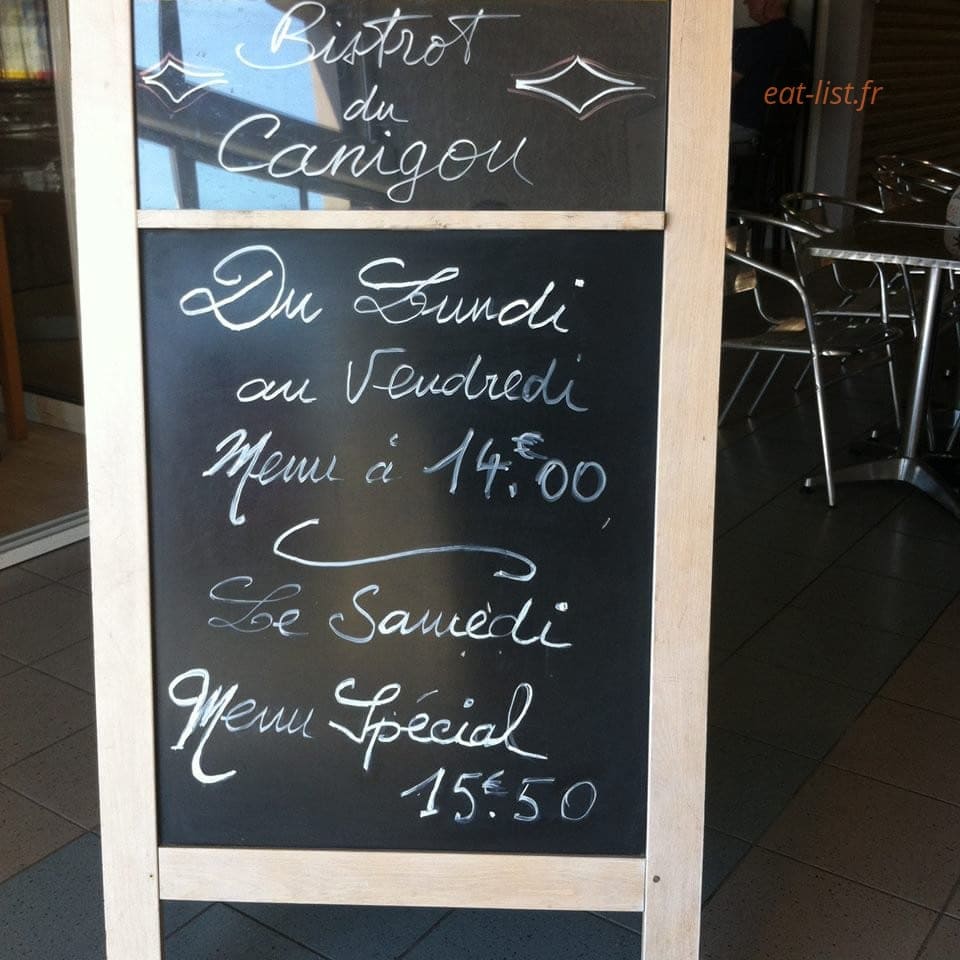 Bistrot
du
Canigou
eat-list.fr
Du Lundi
au Vendredi
Menu à 14.€00
Le Samedi
Menu Spécial
15.€50